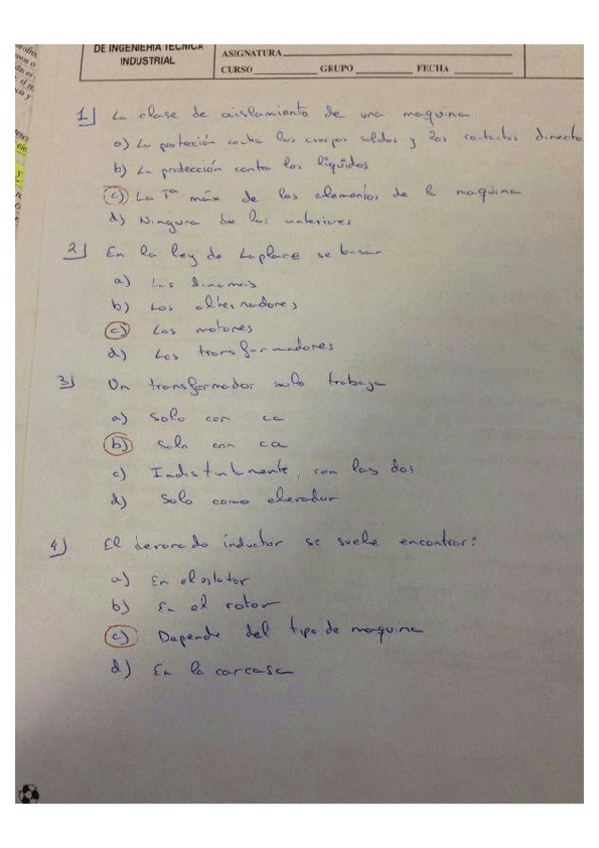 DE INGENIERÍA TÉCNICA
INDUSTRIAL
ASIGNATURA
CURSO GRUPO FECHA
1) La clase de aislamiento de una maquina
a) La protección contra los cuerpos solidos y los contactos directo
b) La protección contra los liquidos
c) La Tª máx de los elementos de la maquina
d) Ninguna de las anteriores
2) En la ley de Laplace se basan
a) Las dinamos
b) Los alternadores
c) Los motores
d) Los transformadores
3) Un transformador solo trabaja
a) Solo con cc
b) Solo con ca
c) Indistintamente, con las dos
d) Solo como elevador
4) El devanado inductor se suele encontrar:
a) En el estator
b) En el rotor
c) Depende del tipo de maquina
d) En la carcasa